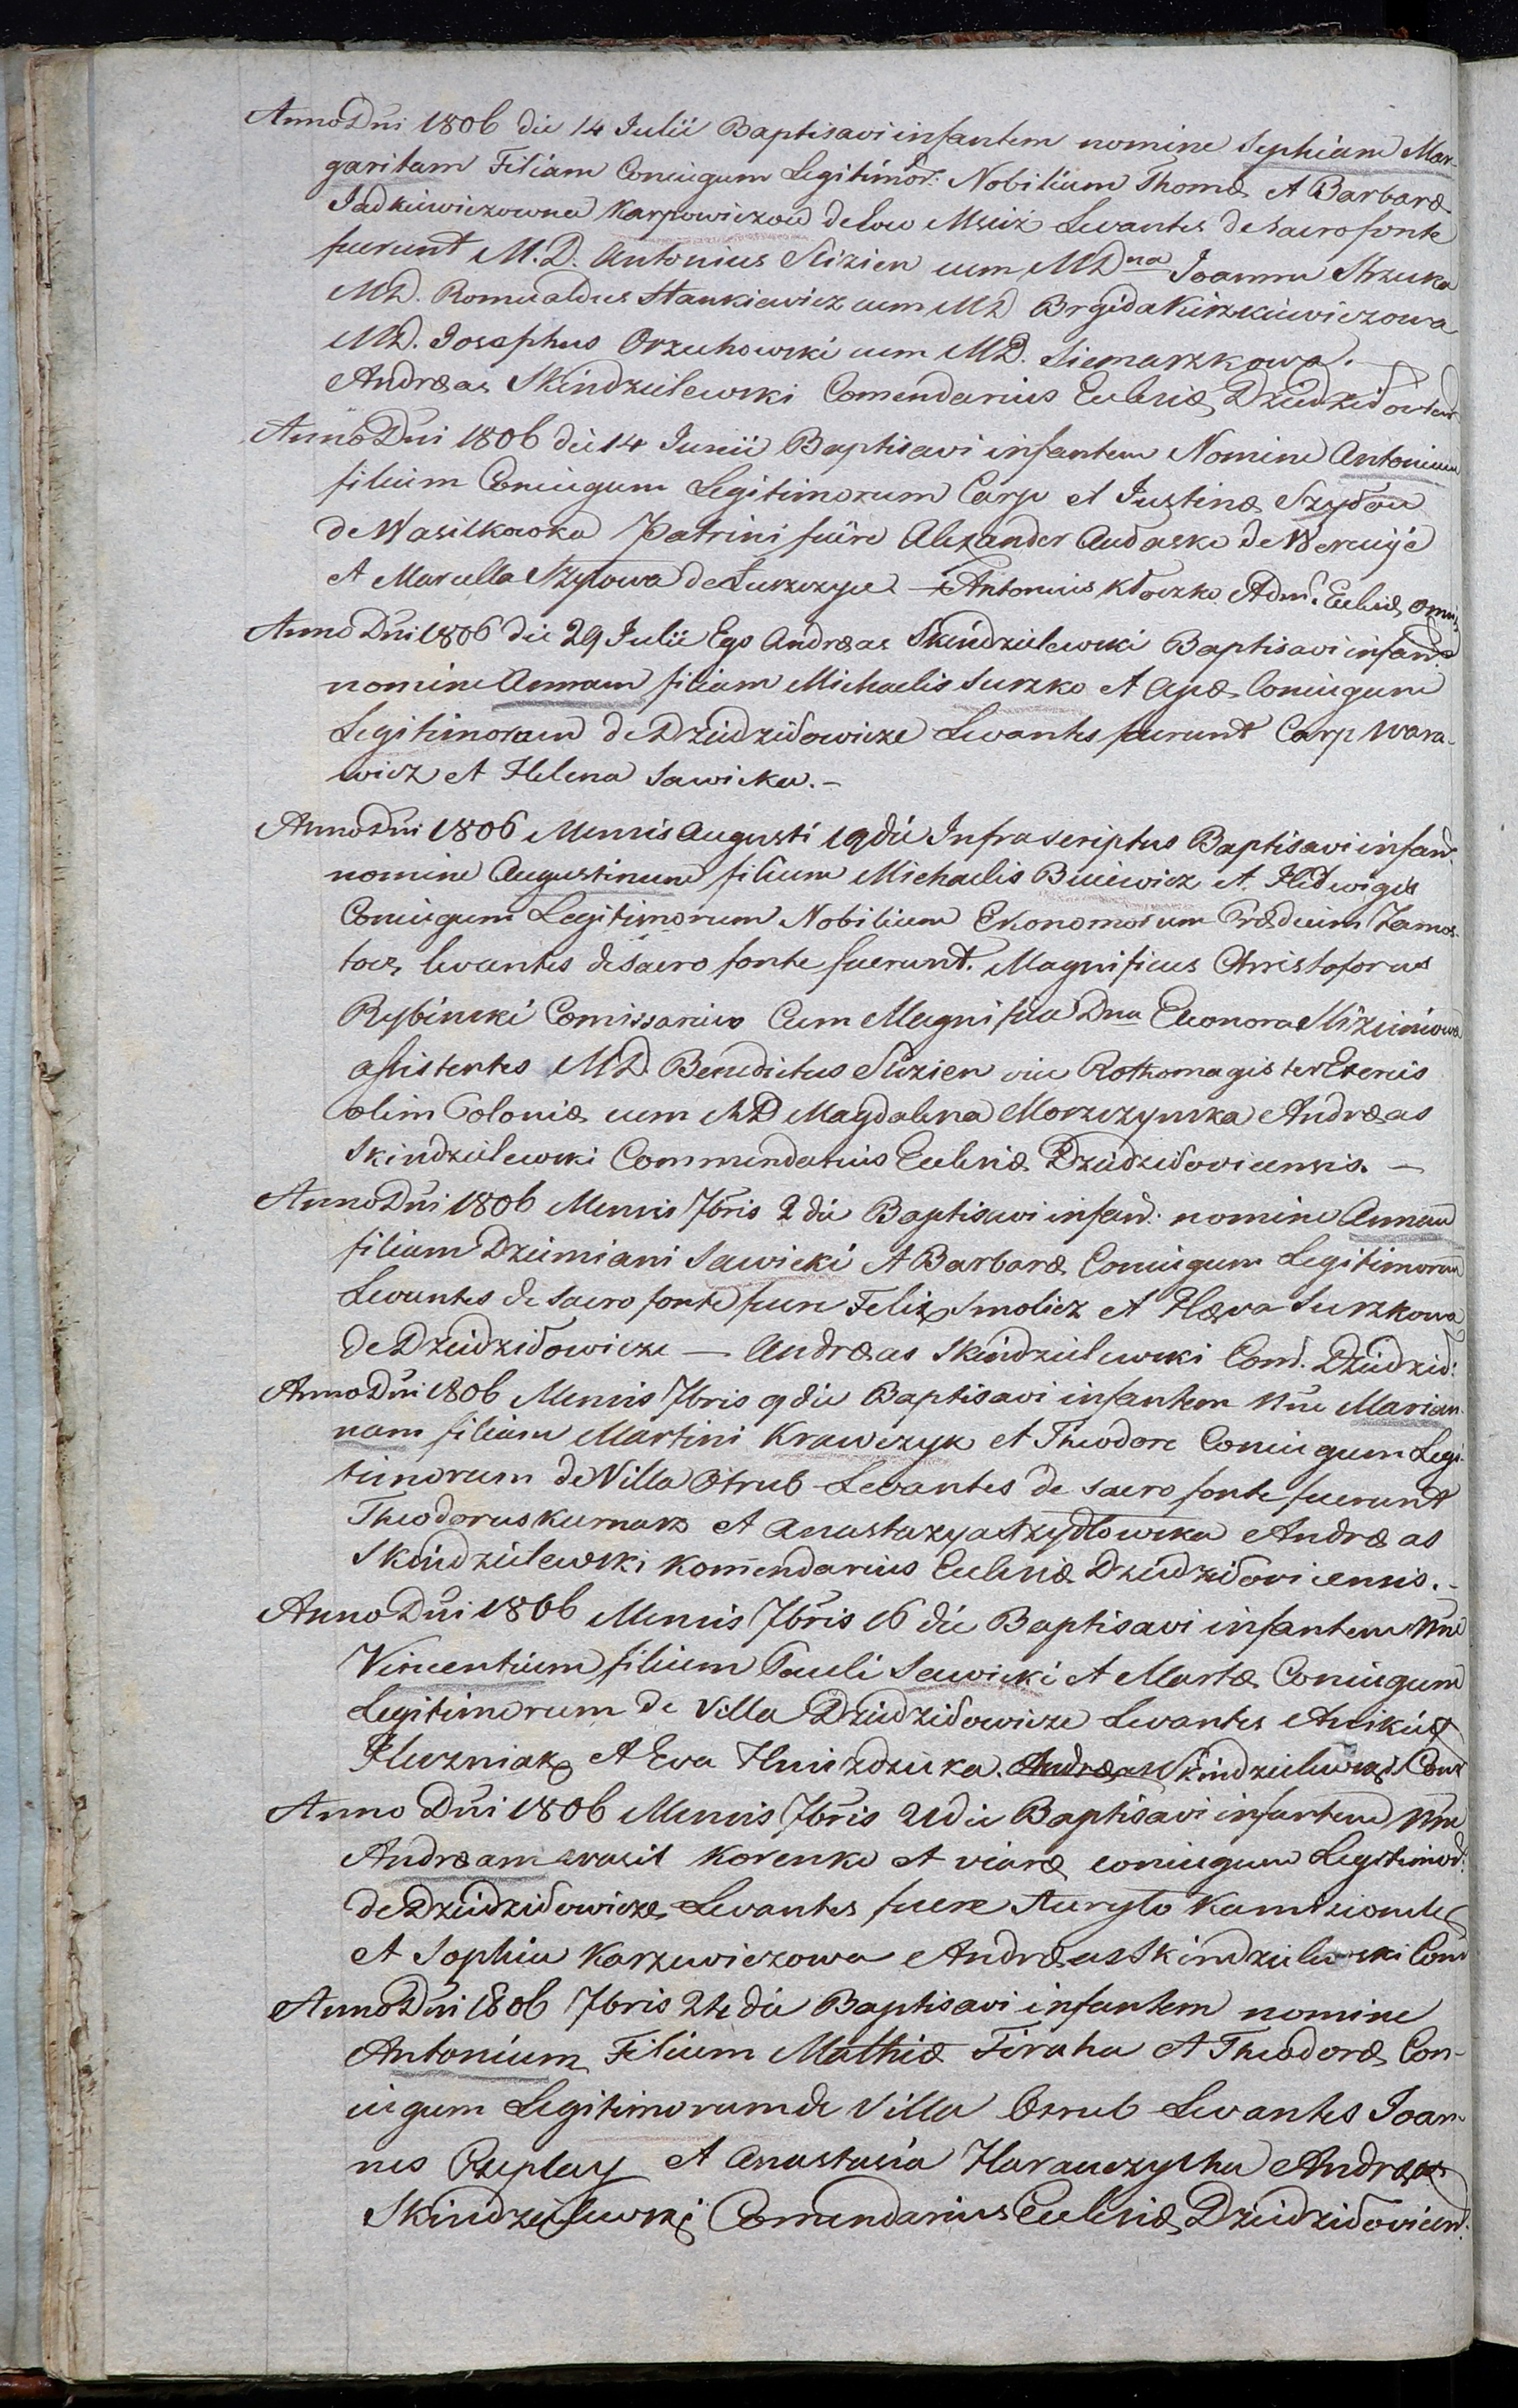 Anno Dni 1806 die 14 Julii Baptisavi infantem nomine Sophiam Mar-
garitam Filiam Coniugum Legitimor: Nobilium Thomæ et Barbaræ
Karpowiczow de loco Msciż Levantes de sacro fonte
fuerunt M.D. Antonius Slizien cum MDna Joanna
MD. Romualdus Stankiewicz cum MD Brgida
MD. Josephus Orzechowski cum MD. Siemaszkowa.
Andræas Skindzielewski Comendarius Ecclesiæ
Anno Dni 1806 die 14 Junii Baptisavi infantem Nomine Antonium
filium Coniugum Legitimorum Carp et Justinæ
de Patrini fuere Alexander de
et Marcella de Antonius Kłoczko Adm. Ecclesiæ
Anno Dni 1806 die 29 Julii Ego Andræas Skindzielewski Baptisavi infan:
nomine Annam filiam Michaelis Suszko et Coniugum
Legitimorum de Dziedziłowicze Levantes fuerunt Carp Wara-
wicz et Helena Sawicka.-
Anno Dni 1806 Mensis Augusti 19 die Infrascriptus Baptisavi infan:
nomine Augustinum filium Michaelis et Hedwigis
Coniugum Legitimorum Nobilium Ekonomorum Prædium Zamos-
tocz levantes de sacro fonte fuerunt. Magnificus Christoforus
Rybinski Comissarius Cum Magnifica Dna Eleonora Slizieniowa
assistentes MD Benedictus Slizien vice Rothomagister
olim Poloniæ cum MD Magdalena Morzczynska Andræas
Skindzielewski Commendarius Ecclesiæ Dziedziłoviciensis. -
Anno Dni 1806 Mensis 7bris 2 die Baptisavi infan: nomine Annam
filiam Dziemiani Sawicki et Barbaræ Coniugum Legitimorum
Levantes de sacro fonte fuere Felix Smolicz et Suszkowa
de Dziedziłowicze — Andræas Skindzielewski Com. Dziedził:
Anno Dni 1806 Mensis 7bris 9 die Baptisavi infantem Nne Marian-
nam filiam Martini Krawczyk et Theodore Coniugum Legi-
timorum de Villa Otrub Levantes de sacro fonte fuerunt
Theodorus et Anastazya Szydłowska Andræas
Skindzielewski Komendarius Ecclesiæ Dziedziłoviciensis.-
Anno Dni 1806 Mensis 7bris 16 die Baptisavi infantem Nne
Vincentium filium Pauli Sawicki et Martæ Coniugum
Legitimorum de Villa Dziedziłowicze Levantes
et Eva Andræas Skindzielewski Com
Anno Dni 1806 Mensis 7bris 21 die Baptisavi infantem Nne
Andræam Korenko et coniugum Legitimor:
de Dziedziłowicze Levantes fuere
et Sophia Andræas Skindzielewski Com
Anno Dni 1806 7bris 24 die Baptisavi infantem nomine
Antonium Filium Mathiæ et Theodoræ Con-
iugum Legitimorum de Villa Levantes Joan-
nes et Anastasia Andræas
Skindzielewski Comendarius Ecclesiæ Dziedziłovicien: